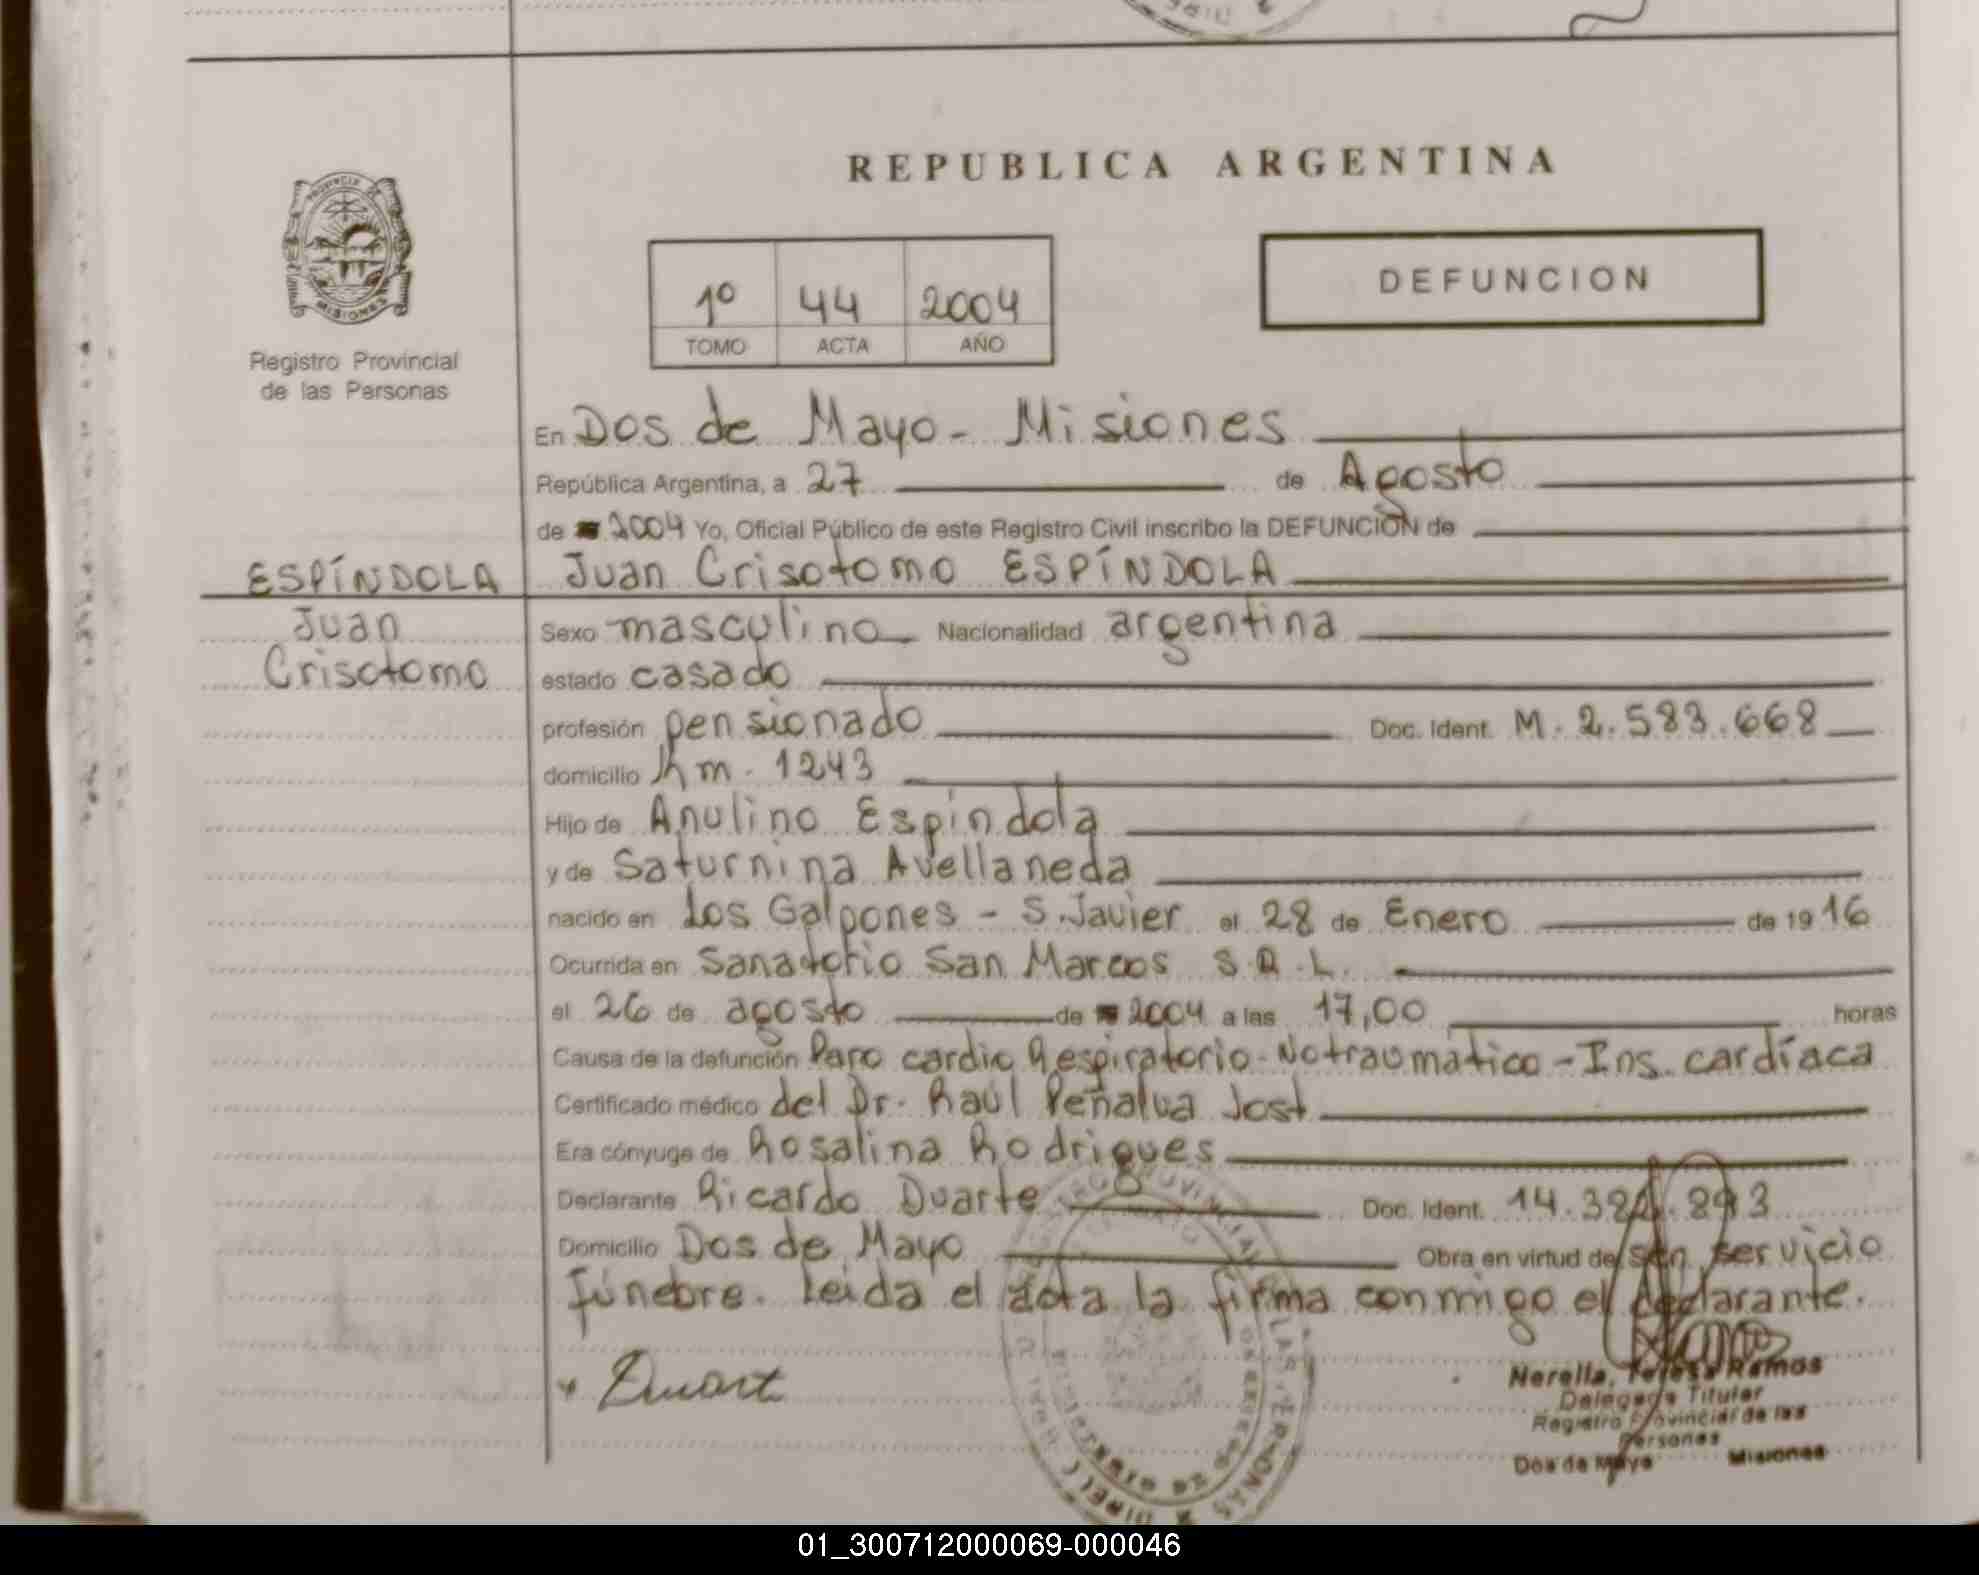 REPUBLICA ARGENTINA
PROVINCIA DE
MISIONES
Registro Provincial
de las Personas
1º 44 2004
TOMO ACTA AÑO
DEFUNCION
En Dos de Mayo - Misiones
República Argentina, a 27 de Agosto
de 2004 Yo, Oficial Público de este Registro Civil inscribo la DEFUNCIÓN de
ESPÍNDOLA Juan Crisotomo ESPÍNDOLA
Juan
Crisotomo
Sexo masculino Nacionalidad argentina
estado casado
profesión pensionado Doc. Ident. M. 2.583.668
domicilio Km. 1243
Hijo de Anulino Espíndola
y de Saturnina Avellaneda
nacido en Los Galpones - S. Javier el 28 de Enero de 1916
Ocurrida en Sanatorio San Marcos S.R.L.
el 26 de agosto de 2004 a las 17,00 horas
Causa de la defunción Paro cardio Respiratorio - No traumático - Ins. cardíaca
Certificado médico del Dr. Raúl Peñalva Jost
Era cónyuge de Rosalina Rodrigues
Declarante Ricardo Duarte Doc. Ident. 14.382.893
Domicilio Dos de Mayo Obra en virtud de ser servicio
fúnebre. Leída el acta la firma conmigo el declarante.
Duart
Nerella, Teresa Ramos
Delegada Titular
Registro Provincial de las
Personas
Dos de Mayo Misiones
01_300712000069-000046